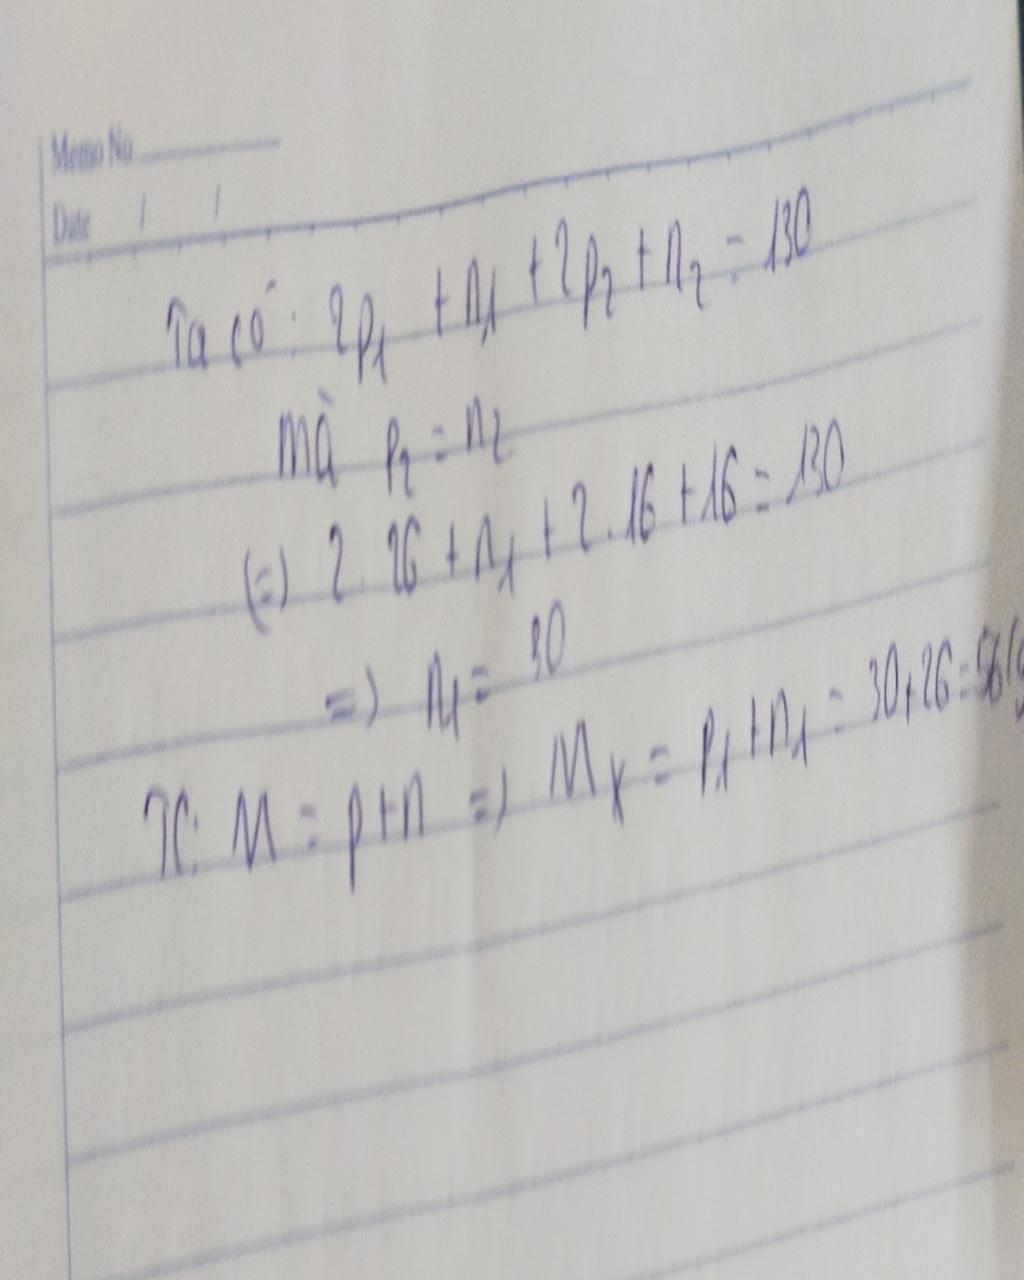 Memo No
Date / /
Ta có: 2p₁ + n₁ + 2p₂ + n₂ = 130
mà p₂ = n₂
(=) 2. 26 + n₁ + 2.16 + 16 = 130
=) n₁ = 30
TC: M = p+n =) Mₓ = p₁ + n₁ = 30+26 = 56(g